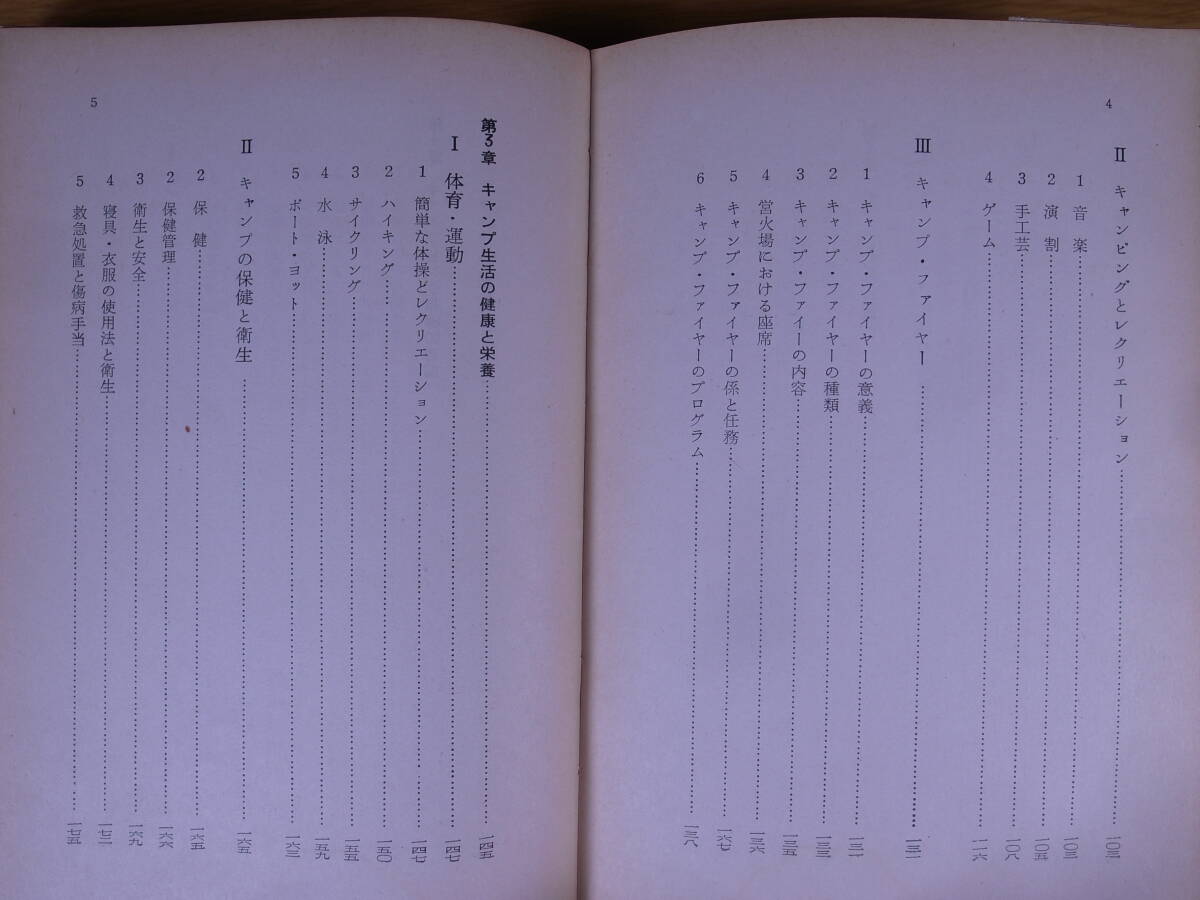 4
Ⅱ キャンピングとレクリエーション……一〇三
1 音楽……一〇三
2 演割……一〇五
3 手工芸……一〇八
4 ゲーム……一一六
Ⅲ キャンプ・ファイヤー……一三一
1 キャンプ・ファイヤーの意義……一三一
2 キャンプ・ファイヤーの種類……一三三
3 キャンプ・ファイーの内容……一三五
4 営火場における座席……一三六
5 キャンプ・ファイヤーの係と任務……一六七
6 キャンプ・ファイヤーのプログラム……一三八
5
第3章 キャンプ生活の健康と栄養……一四五
Ⅰ 体育・運動……一四七
1 簡単な体操とレクリエーション……一四七
2 ハイキング……一五〇
3 サイクリング……一五五
4 水泳……一五九
5 ボート・ヨット……一六三
Ⅱ キャンプの保健と衛生……一六五
2 保健……一六五
2 保健管理……一六六
3 衛生と安全……一六九
4 寝具・衣服の使用法と衛生……一七二
5 救急処置と傷病手当……一七五